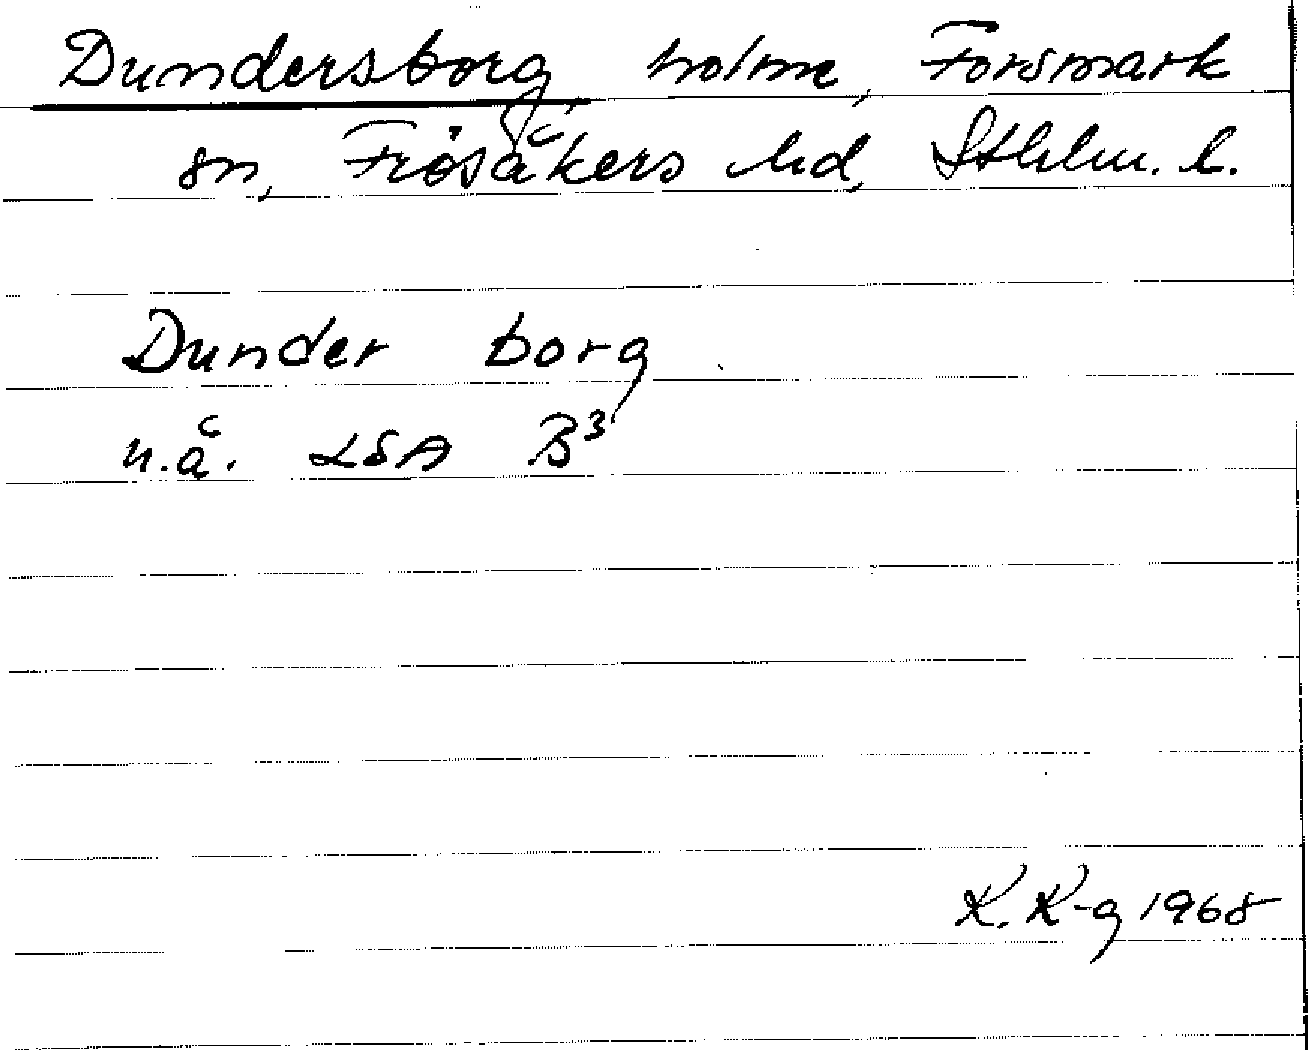 Dundersborg, holme, Forsmark
sn, Frösåkers hd, Sthlm. l.
Dunder borg
n.å. LSA B³
K. K-g 1968